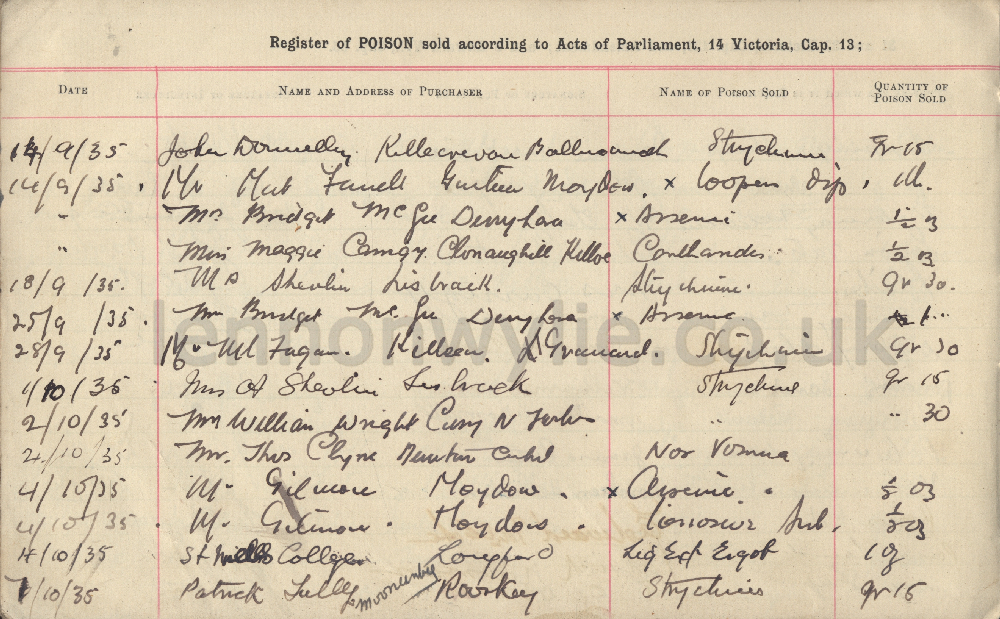 Register of POISON sold according to Acts of Parliament, 14 Victoria, Cap. 13;
DATE NAME AND ADDRESS OF PURCHASER NAME OF POISON SOLD QUANTITY OF POISON SOLD
14/9/35 John Donnelly Strychnine gr 15
14/9/35 . Mr Farrell Moydow. x Coopers dip,
" Mrs Bridget McGee Derryhara x Arsenic ½ oz
" Miss Maggie Clonaughill Killoe ½ oz
18/9/35. Shevlin Lisbrack. Strychnine. gr 30.
25/9/35. Mrs Bridget McGee x Arsenic
28/9/35 Mr Fagan. Killeen. Granard. Strychnine gr 30
1/10/35 Mrs A Shevlin Lisbrack Strychnine gr 15
2/10/35 Mr William Wright N Forbes " " 30
2/10/35 Mr. Thos Clyne Nox Vomica
4/10/35 Mr Gilmore Moydow. x Arsenic.
4/10/35. Mr. Gilmore. Moydow. Corrosive Sub.
4/10/35 St Mels College Longford Liq Ext Ergot
/10/35 Patrick Roosky Strychnine gr 15
lennonwylie.co.uk